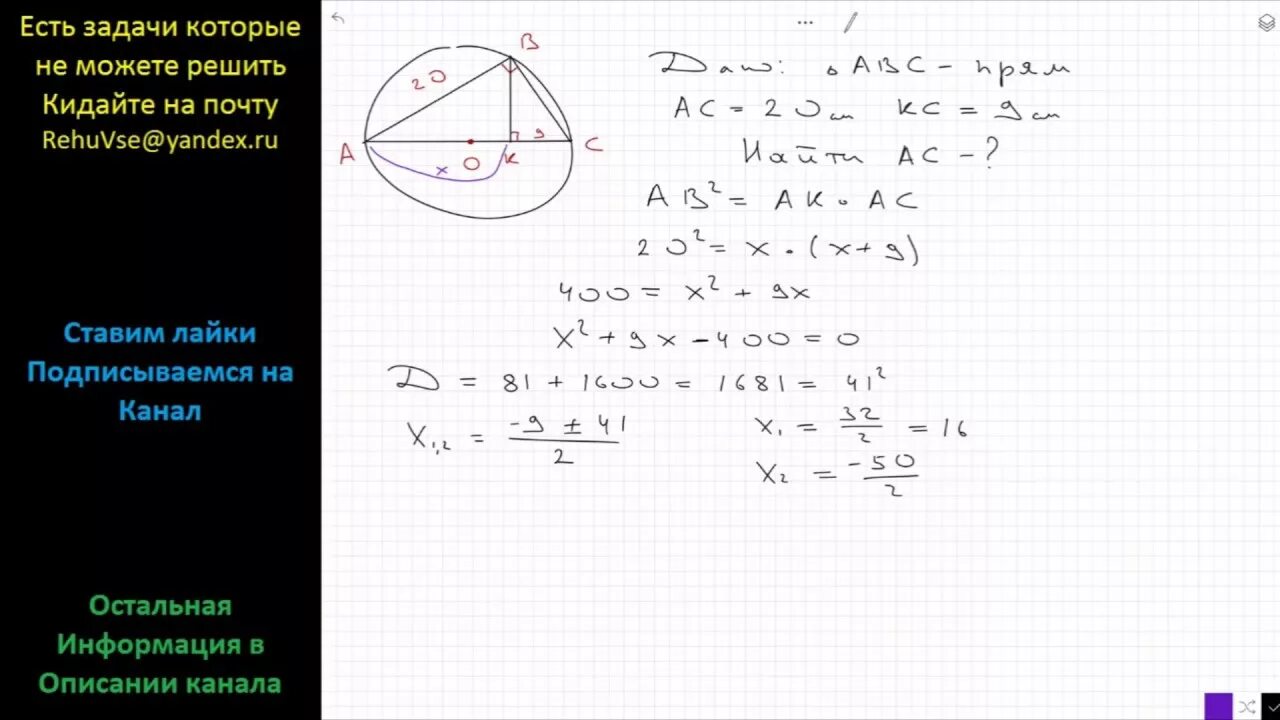 Есть задачи которые
не можете решить
Кидайте на почту
RehuVse@yandex.ru
Ставим лайки
Подписываемся на
Канал
Остальная
Информация в
Описании канала
B
20
A
O
K
9
C
x
Дано: △ABC - прям
AC = 20 см KC = 9 см
Найти AC - ?
AB² = AK · AC
20² = x · (x + 9)
400 = x² + 9x
x² + 9x - 400 = 0
D = 81 + 1600 = 1681 = 41²
X₁,₂ = (-9 ± 41)/2
X₁ = 32/2 = 16
X₂ = -50/2